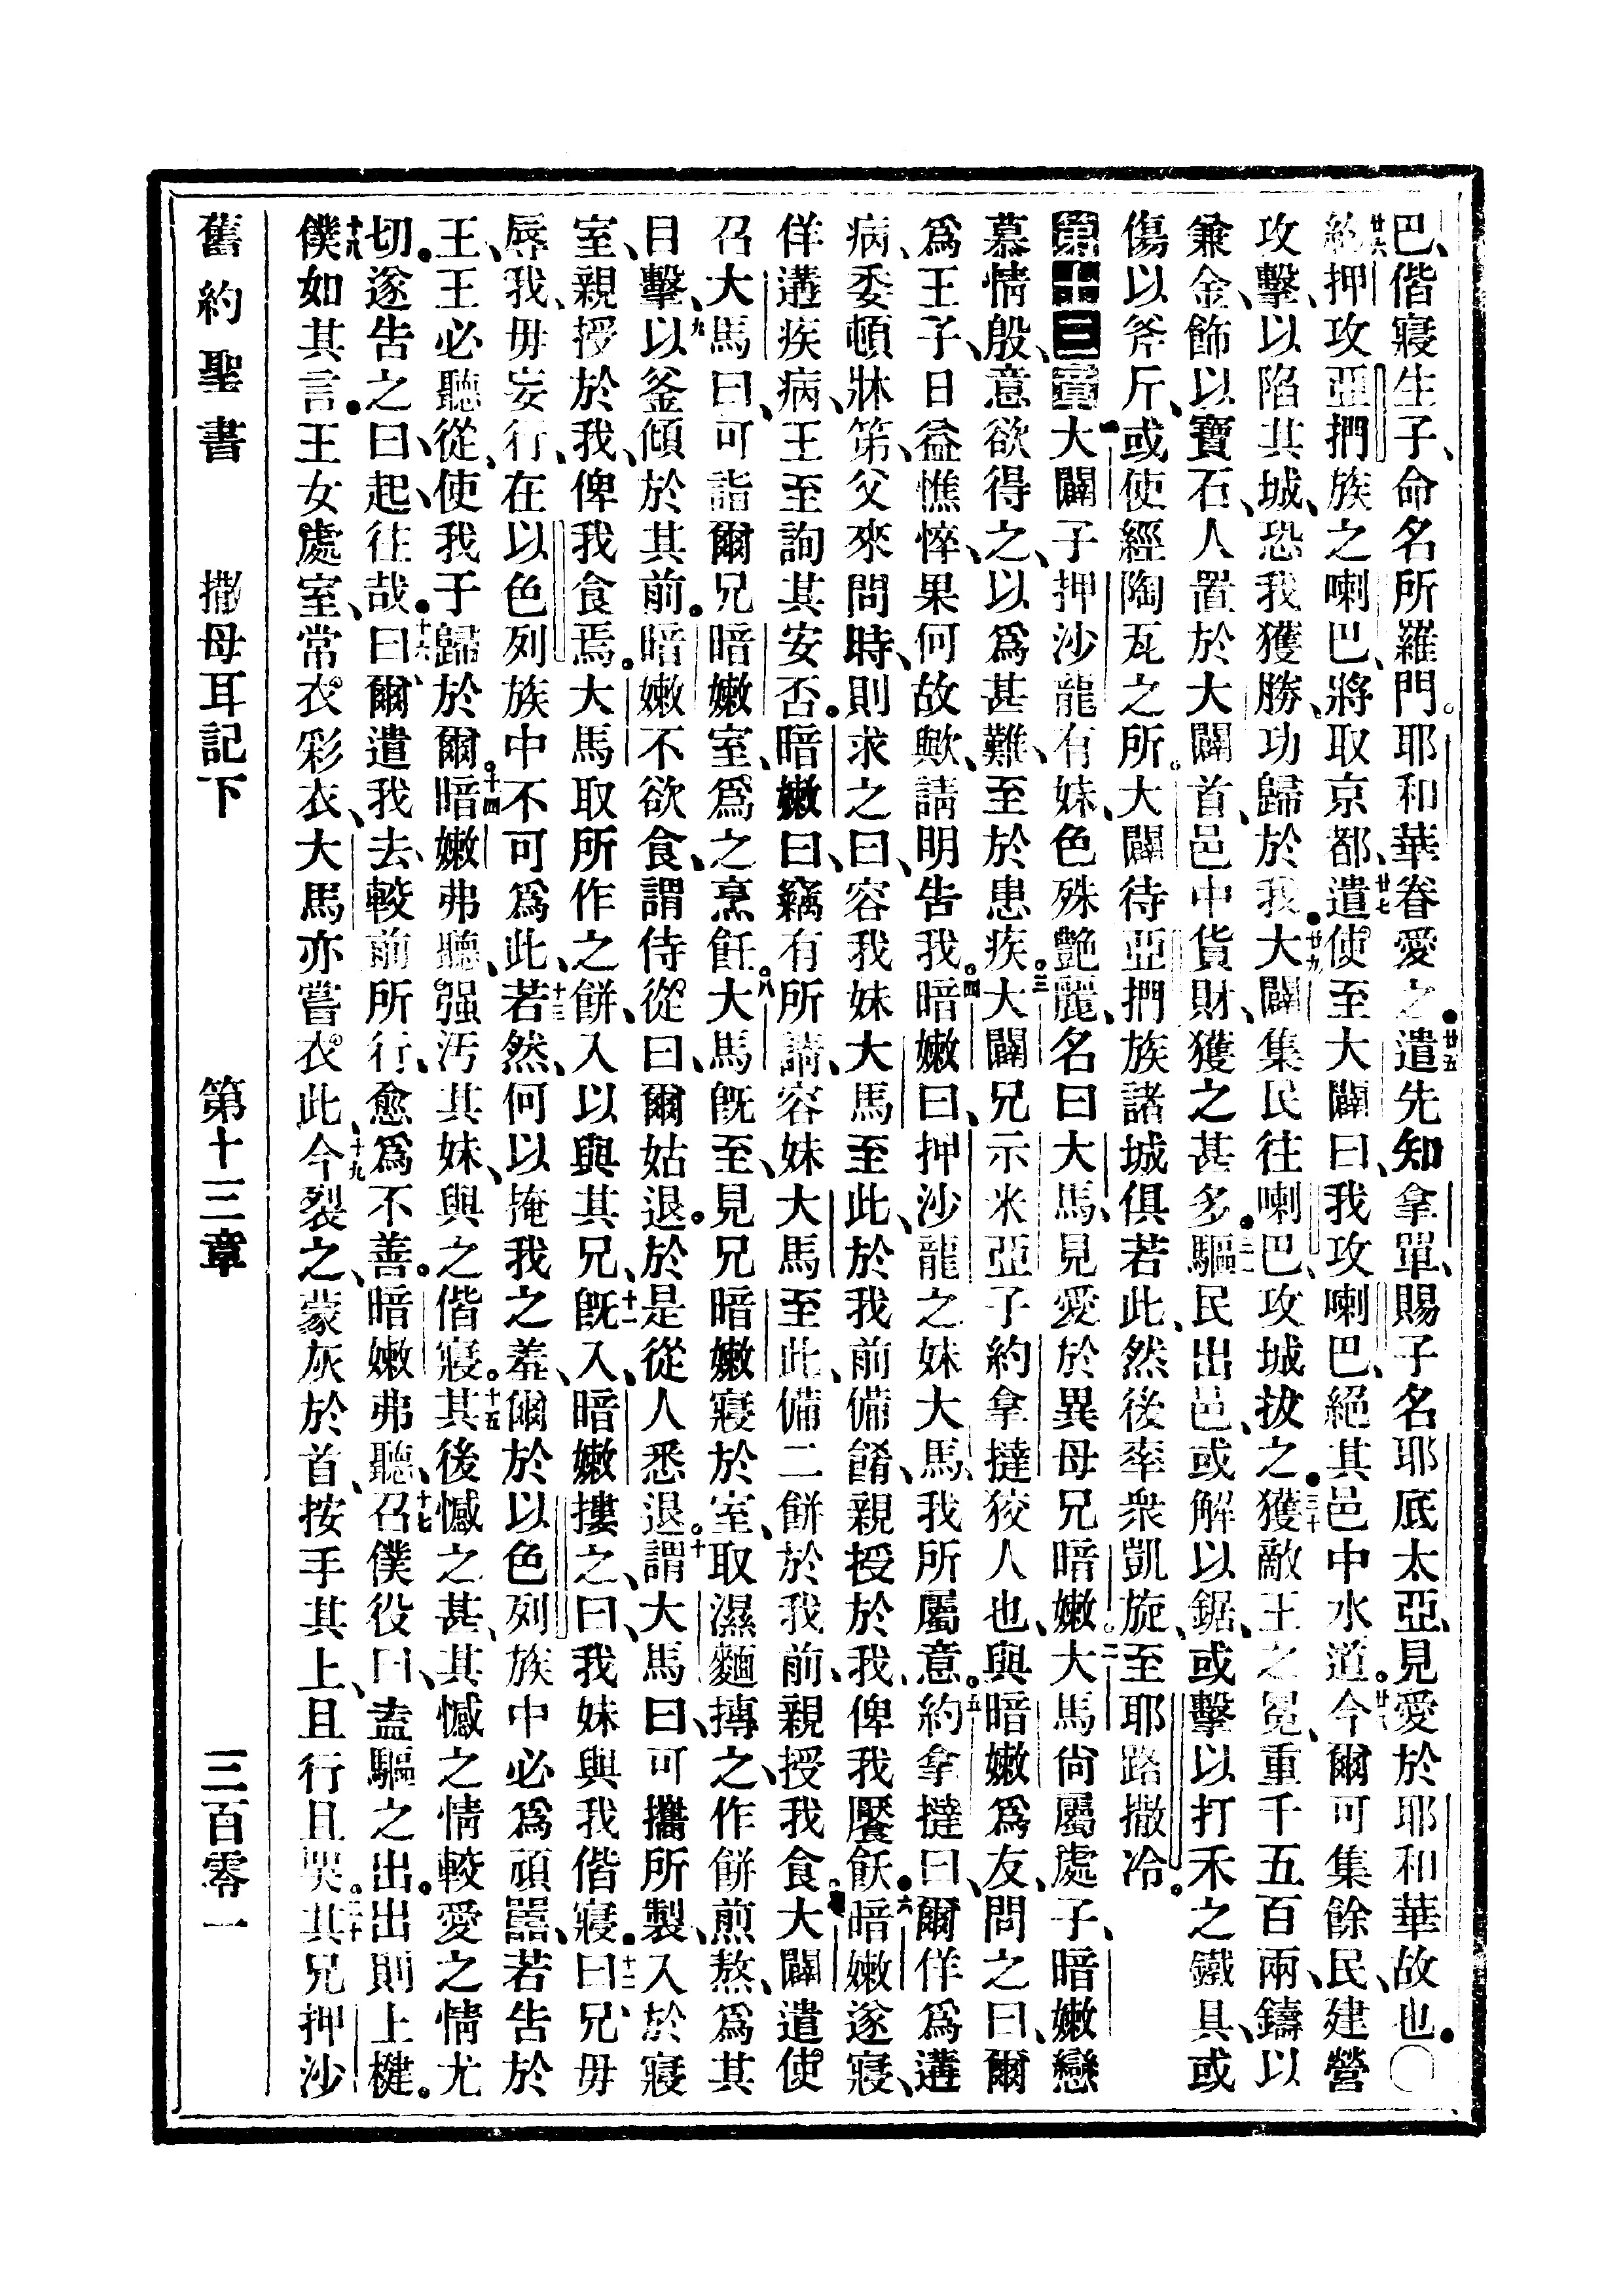 巴、偕寢生子、命名所羅門。耶和華眷愛之。廿五遣先知拿單、賜子名耶底太亞、見愛於耶和華故也。〇
廿六約押攻亞捫族之喇巴、將取京都、廿七遣使至大闢曰、我攻喇巴、絕其邑中水道。廿八今爾可集餘民、建營
攻擊、以陷其城、恐我獲勝、功歸於我。廿九大闢集民往喇巴、攻城拔之。三十獲敵王之冕、重千五百兩、鑄以
兼金、飾以寶石、人置於大闢首、邑中貨財、獲之甚多。三一驅民出邑、或解以鋸、或擊以打禾之鐵具、或
傷以斧斤、或使經陶瓦之所。大闢待亞捫族諸城、俱若此、然後率衆凱旋、至耶路撒冷。
第十三章 一大闢子押沙龍有妹、色殊艷麗、名曰大馬、見愛於異母兄暗嫩。二大馬尙屬處子、暗嫩戀
慕情殷、意欲得之、以爲甚難、至於患疾。三大闢兄示米亞子約拿撻、狡人也、與暗嫩爲友、問之曰、爾
爲王子、日益憔悴、果何故歟、請明告我。四暗嫩曰、押沙龍之妹大馬、我所屬意。五約拿撻曰、爾佯爲遘
病、委頓牀笫、父來問時、則求之曰、容我妹大馬至此、於我前備餚、親授於我、俾我饜飫。六暗嫩遂寢、
佯遘疾病、王至詢其安否。暗嫩曰、竊有所請、容妹大馬至此、備二餅於我前、親授我食。七大闢遣使
召大馬曰、可詣爾兄暗嫩室、爲之烹飪。八大馬旣至、見兄暗嫩寢於室、取濕麵摶之、作餅煎熬、爲其
目擊、九以釜傾於其前。暗嫩不欲食、謂侍從曰、爾姑退。於是從人悉退。十謂大馬曰、可攜所製、入於寢
室、親授於我、俾我食焉。大馬取所作之餅、入以與其兄、十一旣入、暗嫩摟之、曰、我妹與我偕寢。十二曰、兄毋
辱我、毋妄行、在以色列族中不可爲此、十三若然、何以掩我之羞、爾於以色列族中必爲頑嚚、若告於
王、王必聽從、使我于歸於爾。十四暗嫩弗聽、强汚其妹、與之偕寢。十五其後憾之甚、其憾之情、較愛之情尤
切。遂告之曰、起、往哉。十六曰、爾遣我去、較前所行、愈爲不善。暗嫩弗聽、十七召僕役曰、盍驅之出。出則上楗。
十八僕如其言。王女處室、常衣彩衣、大馬亦嘗衣此、十九今裂之、蒙灰於首、按手其上、且行且哭。二十其兄押沙
舊約聖書 撒母耳記下 第十三章 三百零一